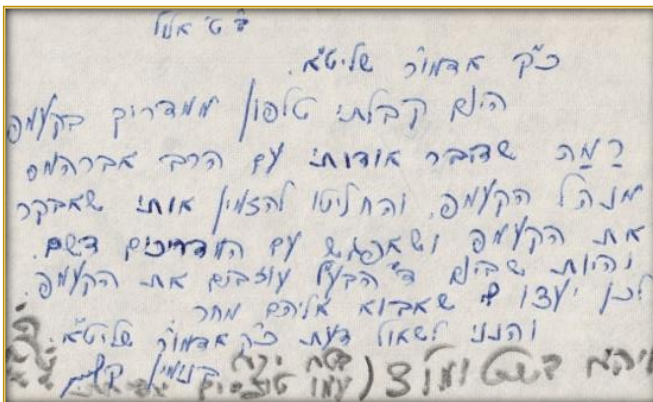 ט' אלול
כ"ק אדמו"ר שליט"א.
היום קבלתי טלפון ממדריך בקעמפ
רָמָה שדבר אודותי עם הרב אברהמס
מנהל הקעמפ, והחליטו להזמין אותי שאבקר
את הקעמפ ושאפגש עם המדריכים דשם.
והיות שביום ד' הבע"ל עוזבים את הקעמפ.
לכן יעצו לי שאבוא אליהם מחר.
והנני לשאול דעת כ"ק אדמו"ר שליט"א.
בנימין קליין